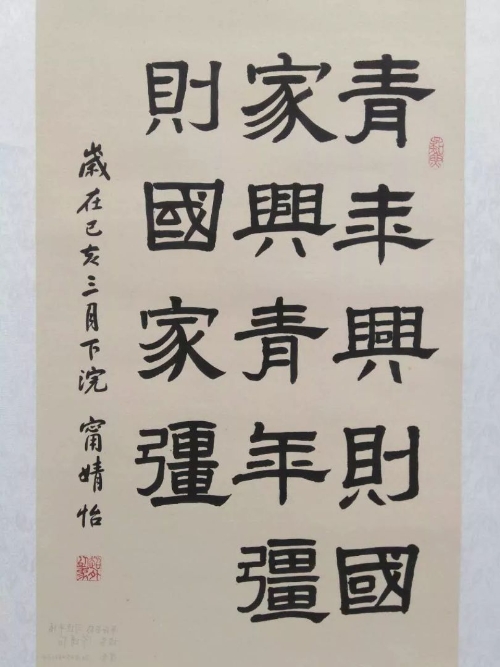 青年興則國
家興青年彊
則國家彊
歲在己亥三月下浣 甯婧怡